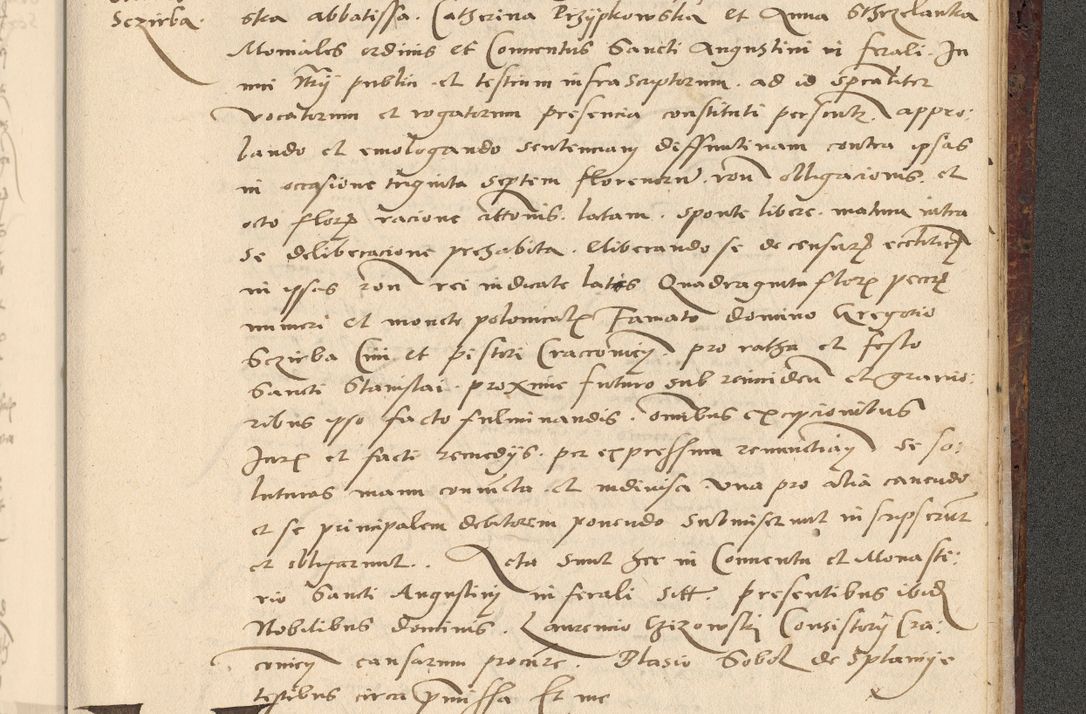 Sczirba.
ska abbatissa. Catherina Przÿpkowska et Anna Strzelanka
Moniales ordinis et Conuentus Sancti Augustini in ferali. In
mei Nrÿ publici et testium infrascriptorum. ad id specialiter
vocatorum et rogatorum presencia constituti personlr. appro:
bando et emologando sentenciam diffinitivam contra ipsas
in occasione triginta septem florenorum. rone obligacionis. et
octo florz racione attonis. latam. sponte libere. matura intra
se deliberacione prehabita. Eliberando se de censurz
in ipsas rone rei iudicate latis Quadraginta florz pecun
numeri et monete polonicalz Famato domino Gregorio
Sczirba Ciui et pistori Cracouien. pro ratha et festo
Sancti Stanislai. proxime futuro sub reinciden et grauio:
ribus ipso facto fulminandis. omnibus excepcionibus
Jurz et facti remedÿs. per expressum renunctian se so:
luturas manu coniuncta et indiuisa vna pro alia cauendo
et se principalem debitorem ponendo submiserunt inscripserunt
et obligarunt.. Acta sunt hec in Conuentu et Monaste:
rio Sancti Augustini in ferali sitt. presentibus ibidem
Nobilibus dominis. Laurencio Consistorÿ Cra:
couien causarum procure. Blasio Sobol de
testibus circa premissa Et me